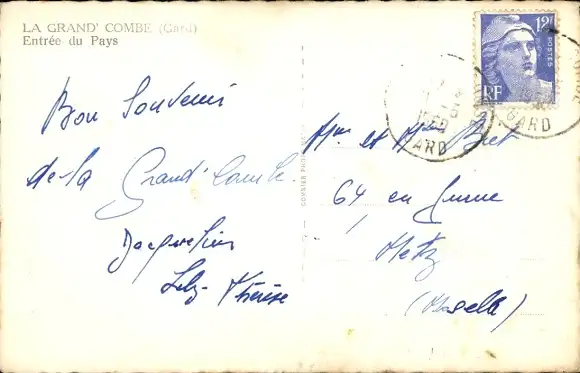 LA GRAND' COMBE (Gard)
Entrée du Pays
12F
POSTES
RF
GARD
GARD
Bon Souvenir
de la Grand' Combe.
Jacqueline
Lily Thérèse
Mr et Mme Bret
64 en
Metz
(Moselle)